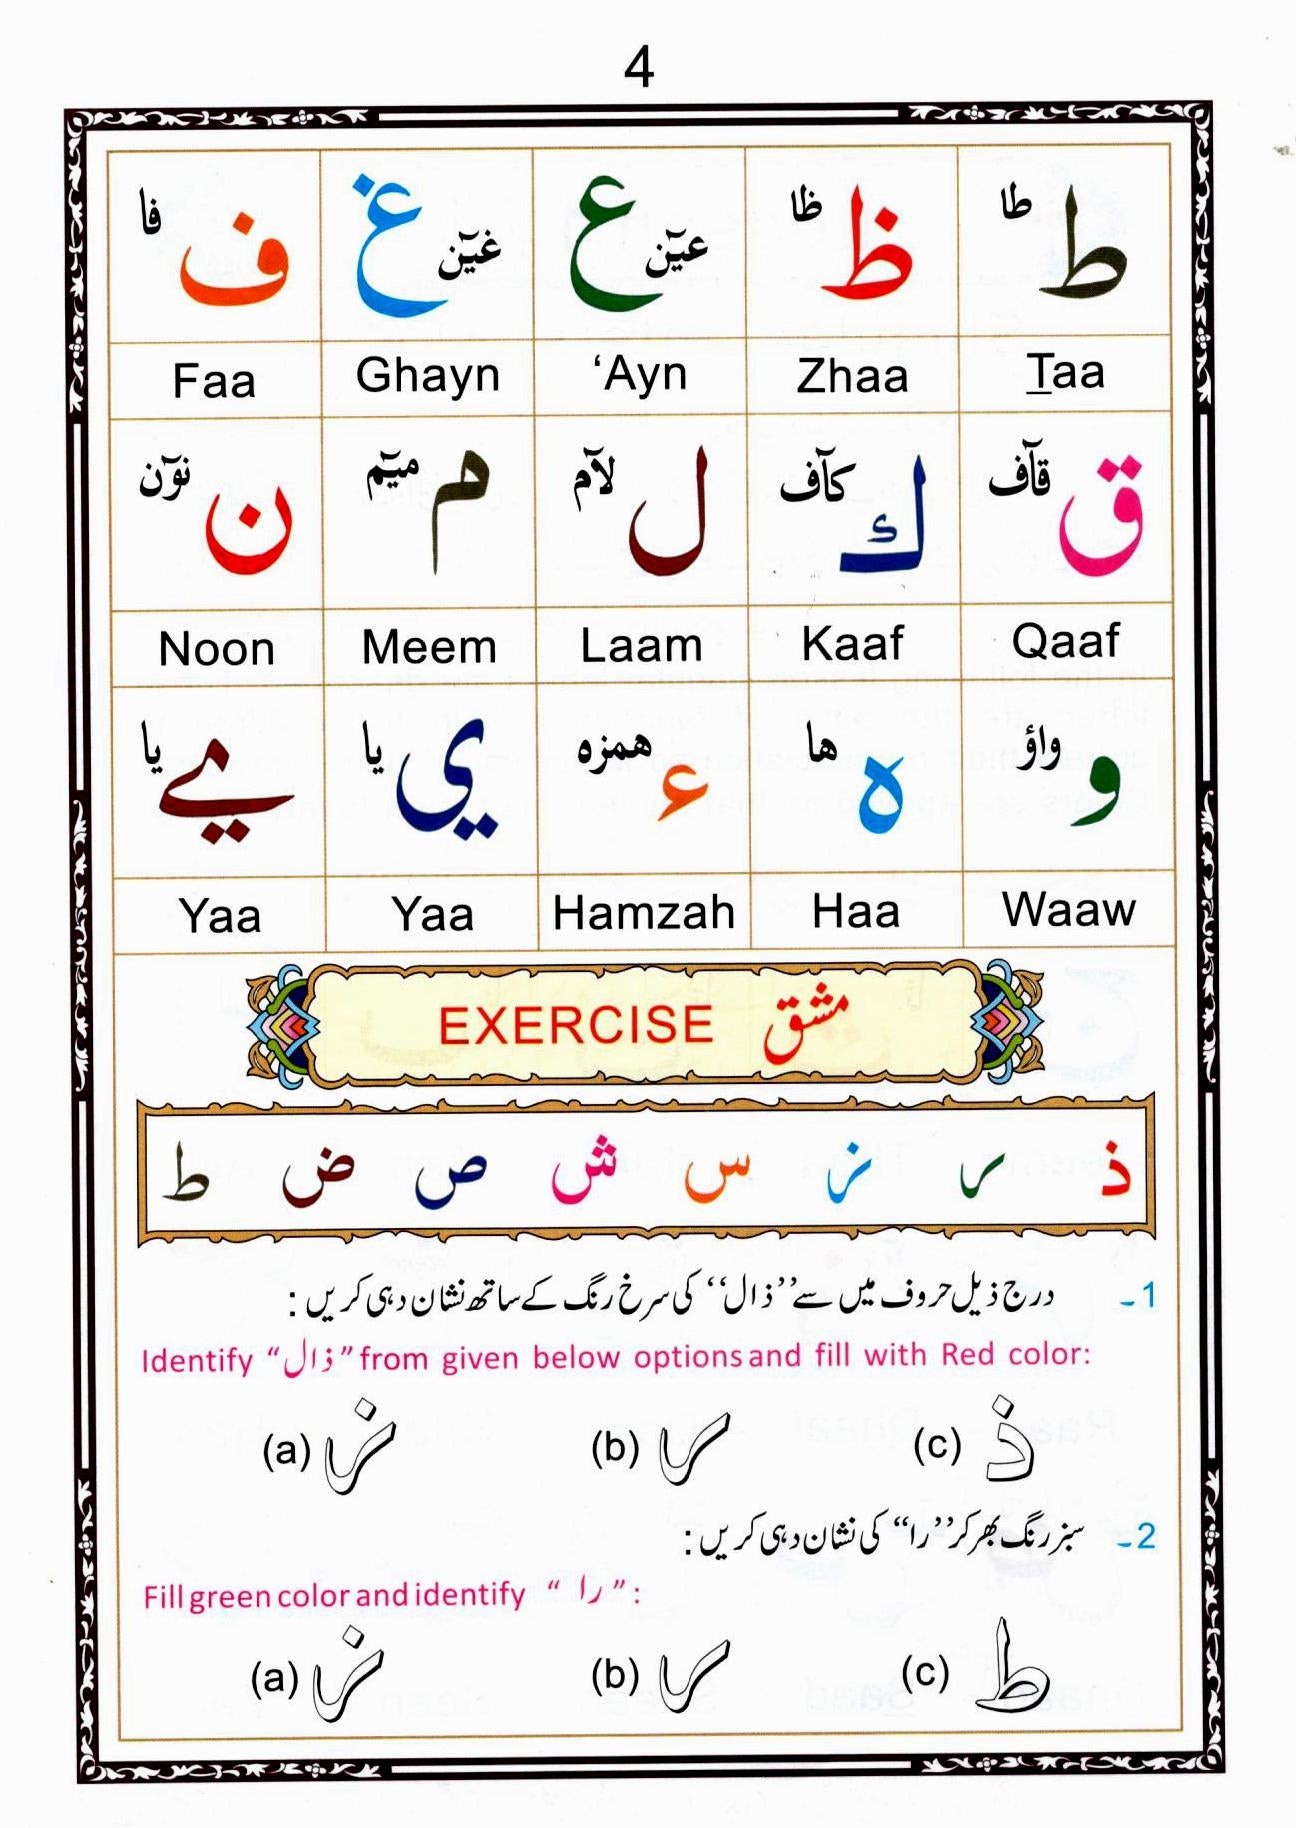 4
ط طا ظ ظا ع عیٓن غ غیٓن ف فا
Taa Zhaa ‘Ayn Ghayn Faa
ق قآف ك كآف ل لآم م میٓم ن نوٓن
Qaaf Kaaf Laam Meem Noon
و واؤ ه ها ء همزه ي یا ے یا
Waaw Haa Hamzah Yaa Yaa
EXERCISE مشق
ذ ر ز س ش ص ض ط
1۔ درج ذیل حروف میں سے ’’ذال‘‘ کی سرخ رنگ کے ساتھ نشان دہی کریں :
Identify “ذال” from given below options and fill with Red color:
(a) ز (b) ر (c) ذ
2۔ سبز رنگ بھر کر ’’را‘‘ کی نشان دہی کریں :
Fill green color and identify “را” :
(a) ز (b) ر (c) ط